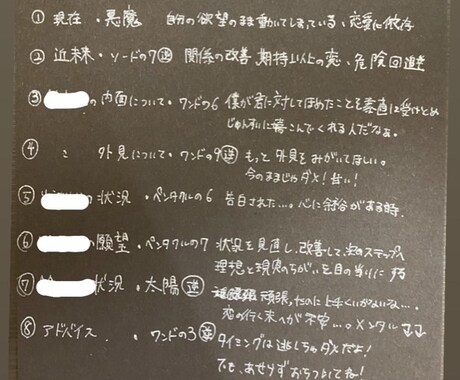 ① 現在・悪魔 自分の欲望のまま動いてしまっている、恋愛に依存
② 近未来・ソードの7 逆 関係の改善 期待以上の恋、危険回避
③ の内面について・ワンドの6 僕が君に対してほめたことを素直に受けとめ
じゅんすいに喜こんでくれる人だなぁ。
④ 〃 外見について・ワンドの9 逆 もっと外見をみがいてほしい。
今のままじゃダメ!甘い!
⑤ 状況・ペンタクルの6 告白された…。心に余裕がある時。
⑥ の願望・ペンタクルの7 状況を見直し、改善して、次のステップへ
理想と現実のちがいを目の当りにする
⑦ 状況・太陽 逆 頑張ったのに上手くいかないな…。
恋の行く末へが不安…。メンタル↓↓
⑧ アドバイス・ワンドの3 逆 タイミングは逃しちゃダメだよ!
でも、あせらずおちついてね!